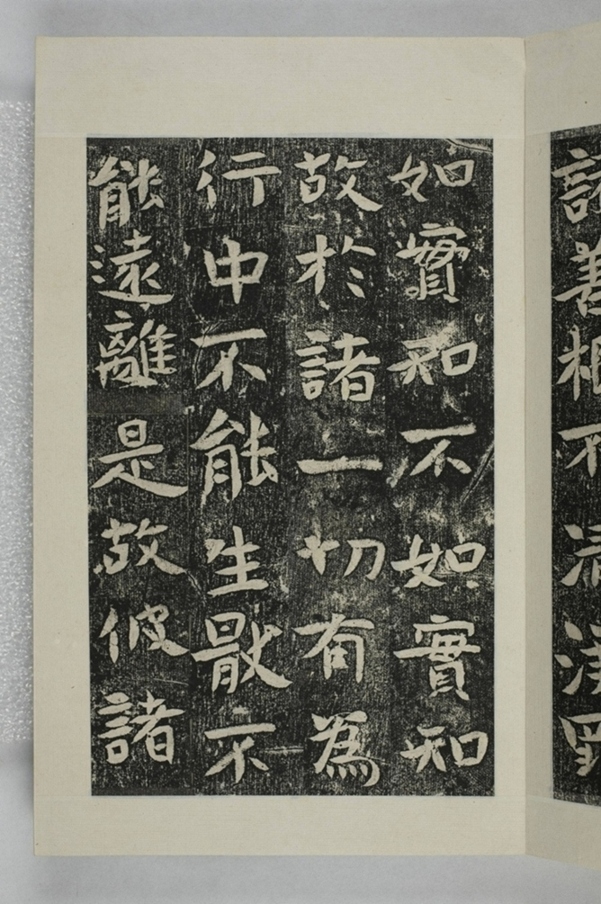 諸善根不清淨
如實知不如實知
故於諸一切有為
行中不能生猒不
能遠離是故彼諸